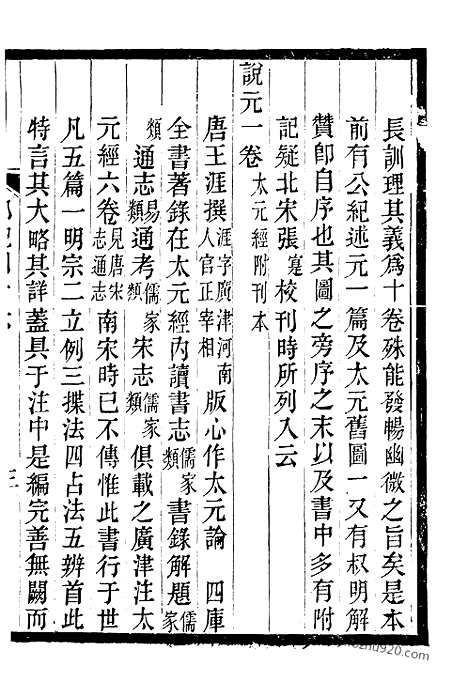 長訓理其義為十卷殊能發暢幽微之旨矣是本
前有公紀述元一篇及太元舊圖一又有叔明解
贊卽自序也其圖之旁序之末以及書中多有附
記疑北宋張寔校刊時所列入云
說元一卷太元經附刊本
唐王涯撰涯字廣津河南人官正宰相版心作太元論 四庫
全書著錄在太元經內讀書志儒家類書錄解題儒家
類通志易類通考儒家類宋志儒家類俱載之廣津注太
元經六卷見唐宋志通志南宋時已不傳惟此書行于世
凡五篇一明宗二立例三揲法四占法五辨首此
特言其大略其詳蓋具于注中是編完善無闕而